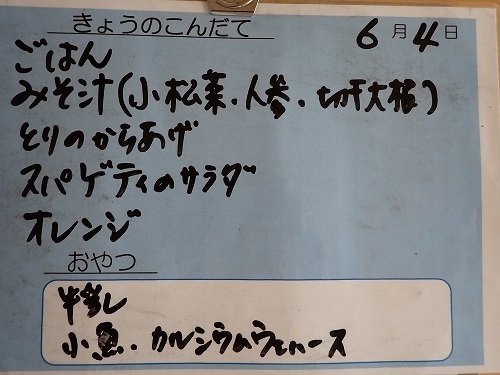 きょうのこんだて 6月4日
ごはん
みそ汁(小松菜・人参・切干大根)
とりのからあげ
スパゲティのサラダ
オレンジ
おやつ
牛乳
小魚・カルシウムウエハース